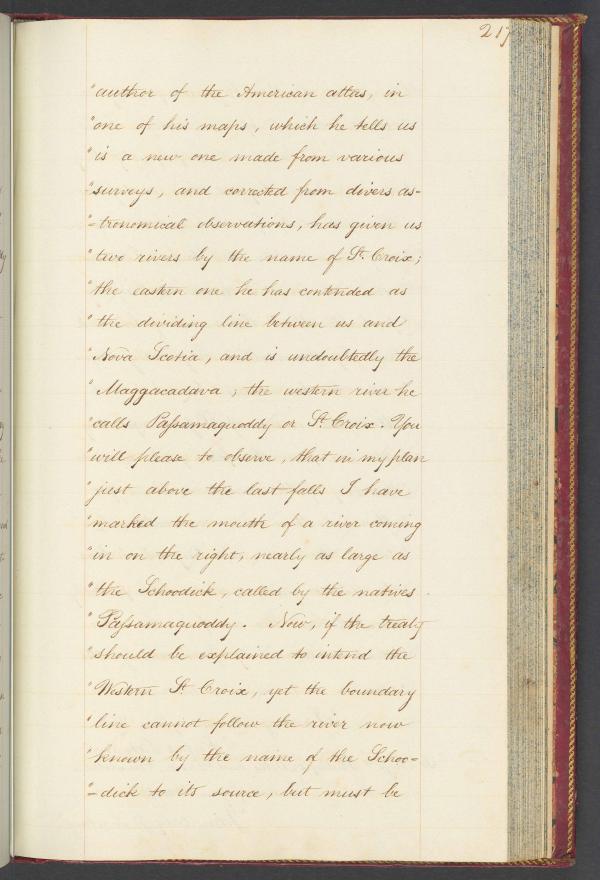 217
"author of the American atlas, in
"one of his maps, which he tells us
"is a new one made from various
"surveys, and corrected from divers as-
"-tronomical observations, has given us
"two rivers by the name of St. Croix;
"the eastern one he has contended as
"the dividing line between us and
"Nova Scotia, and is undoubtedly the
"Maggacadava; the western river he
"calls Passamaquoddy or St. Croix. You
"will please to observe, that in my plan
"just above the last falls I have
"marked the mouth of a river coming
"in on the right, nearly as large as
"the Schoodick, called by the natives
"Passamaquoddy. Now, if the treaty
"should be explained to intend the
"Western St Croix, yet the boundary
"line cannot follow the river now
"known by the name of the Schoo-
"-dick to its source, but must be